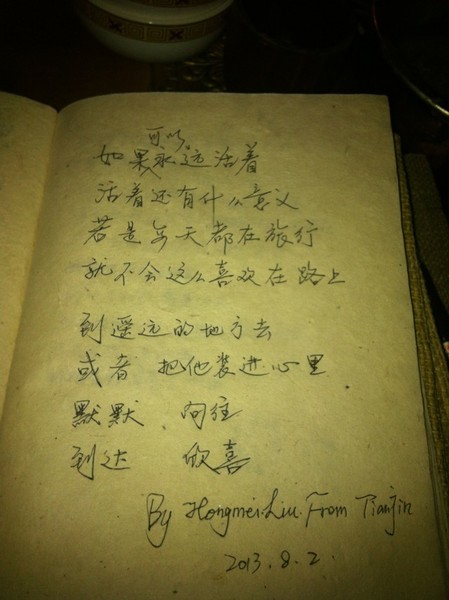 可以
如果永远活着
活着还有什么意义
若是每天都在旅行
就不会这么喜欢在路上
到遥远的地方去
或者 把他装进心里
默默 向往
到达 欣喜
By Hongmei.Liu. From Tianjin
2013.8.2.